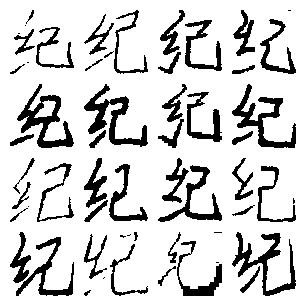 纪纪纪纪
纪纪纪纪
纪纪纪纪
纪纪纪纪